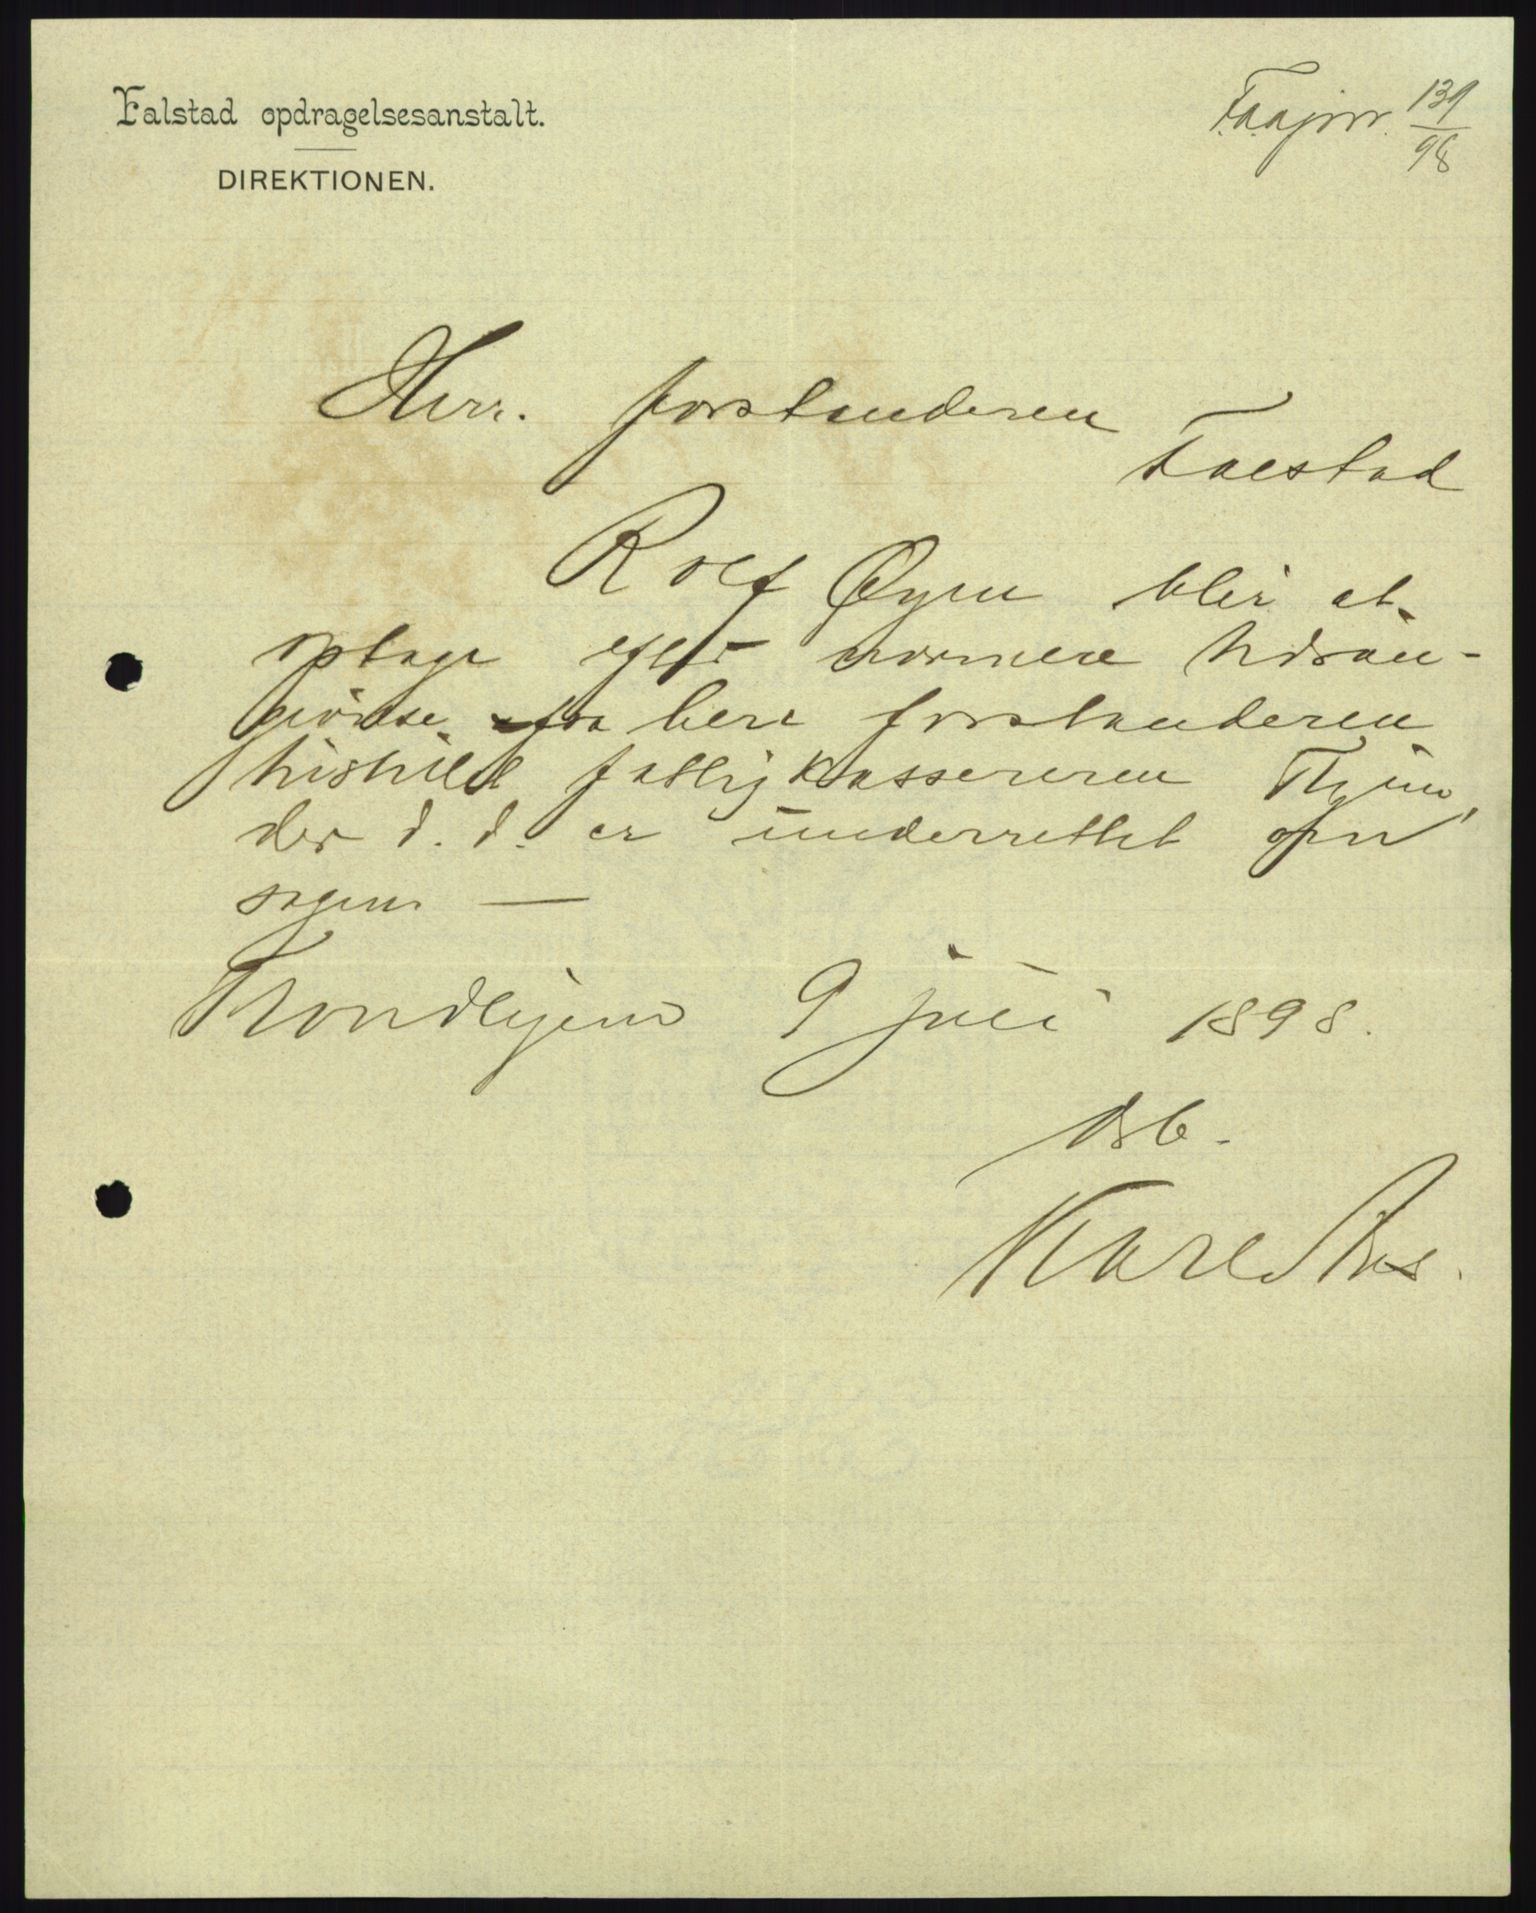 Falstad opdragelsesanstalt.
DIREKTIONEN.
Faajnr. 139/98
Herr. forstanderen
Falstad
Rolf Øyen blir at
optage efter nærmere
fra herr forstanderen
fattigkassereren
der d. d. er underrettet om
sagen —
Trondhjem 9 juli 1898.
Karl